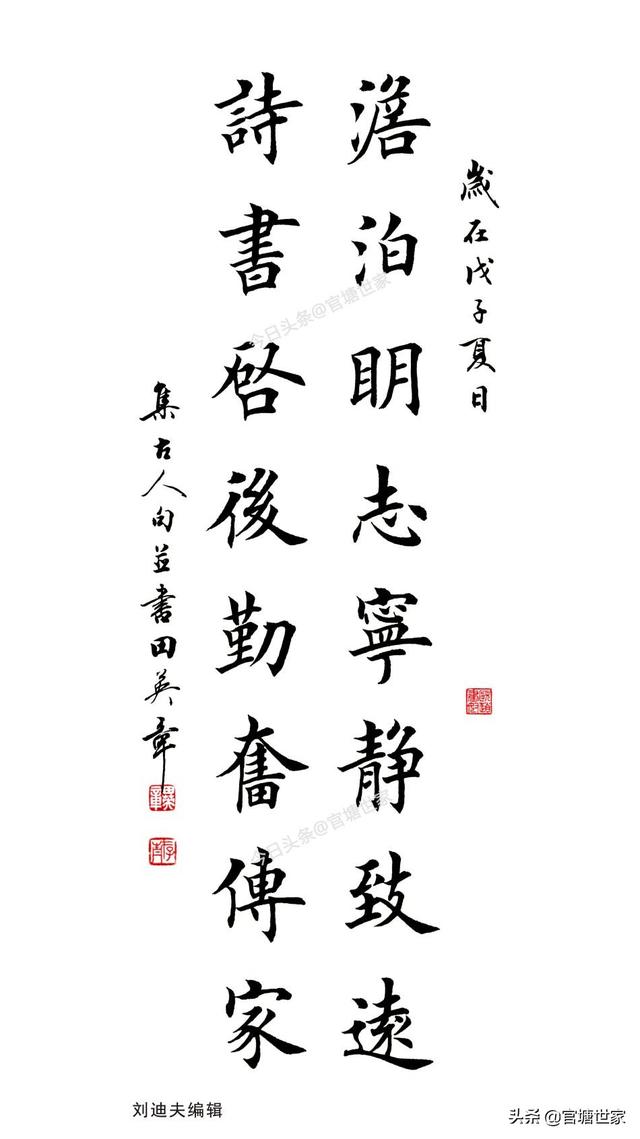 歲在戊子夏日
澹泊明志寧靜致遠
詩書啓後勤奮傳家
集古人句並書田英章
今日头条@官塘世家
今日头条@官塘世家
刘迪夫编辑
头条@官塘世家